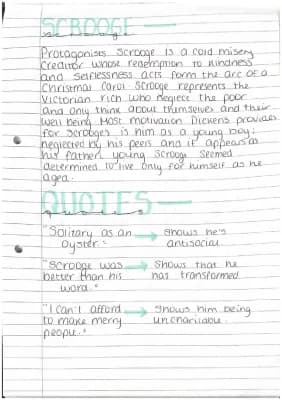 SCROOGE
Protagonists. Scrooge is a cold misery
creditor whose redemption to kindness
and selflessness acts form the arc of a
Christmas Carol Scrooge represents the
Victorian rich who neglect the poor
and only think about themselves and their
well being. Most motivation Dickens provides
for scrooges is him as a young boy;
neglected by his peers and it appears as
his father, young Scrooge seemed
determined to live only for himself as he
aged.
QUOTES
quotes
"Solitary as an → shows he's
oyster." antisocial
"Scrooge was → Shows that he
better than his has transformed
word."
"I can't afford → Shows him being
to make merry uncharitable.
people."